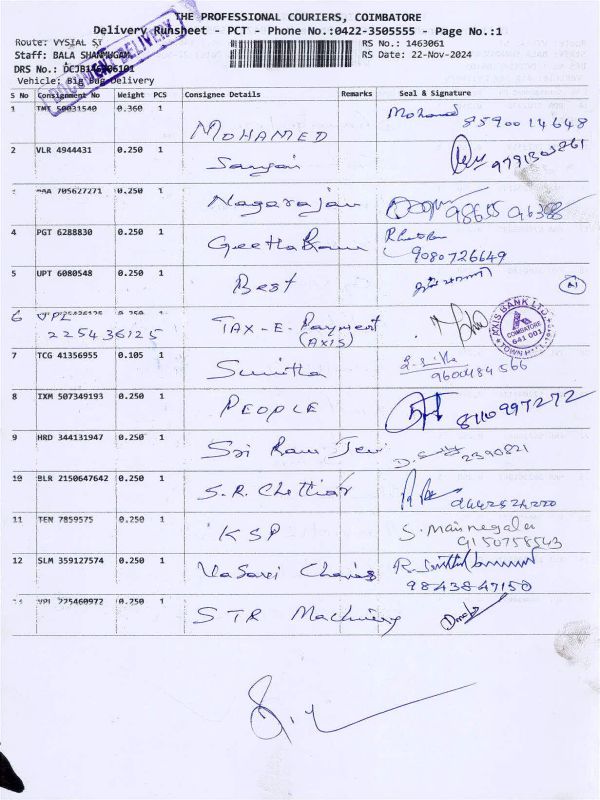 THE PROFESSIONAL COURIERS, COIMBATORE
Delivery Runsheet - PCT - Phone No.:0422-3505555 - Page No.:1
Route: VYSIAL ST
RS No.: 1463061
Staff: BALA SHANMUGAM
RS Date: 22-Nov-2024
DRS No.: DCJB146306101
Vehicle: Big Bug Delivery
DOCUMENT DELIVERY
S No Consignment No Weight PCS Consignee Details Remarks Seal & Signature
1 TMT 50031540 0.360 1 MOHAMED Mohamed 8590014648
2 VLR 4944431 0.250 1 Sanjai 9791303261
MAA 705627271 0.250 1 Nagarajan
4 PGT 6288830 0.250 1 Geetha 9080726649
5 UPT 6080548 0.250 1 Best
6 JPL 225436125 1 TAX-E-Payment
(AXIS)
AXIS BANK LTD.
COIMBATORE
641 001
TOWN HALL
7 TCG 41356955 0.105 1 Sunitha 9600484566
8 IXM 507349193 0.250 1 PEOPLE 8110997272
9 HRD 344131947 0.250 1 Sri Ram Jew 2390821
10 BLR 2150647642 0.250 1 S.R. Chettiar
11 TEN 7859575 0.250 1 KSP S. 9150758543
12 SLM 359127574 0.250 1 Vasavi 98438 47150
225460972 0.250 1 STR Machinery